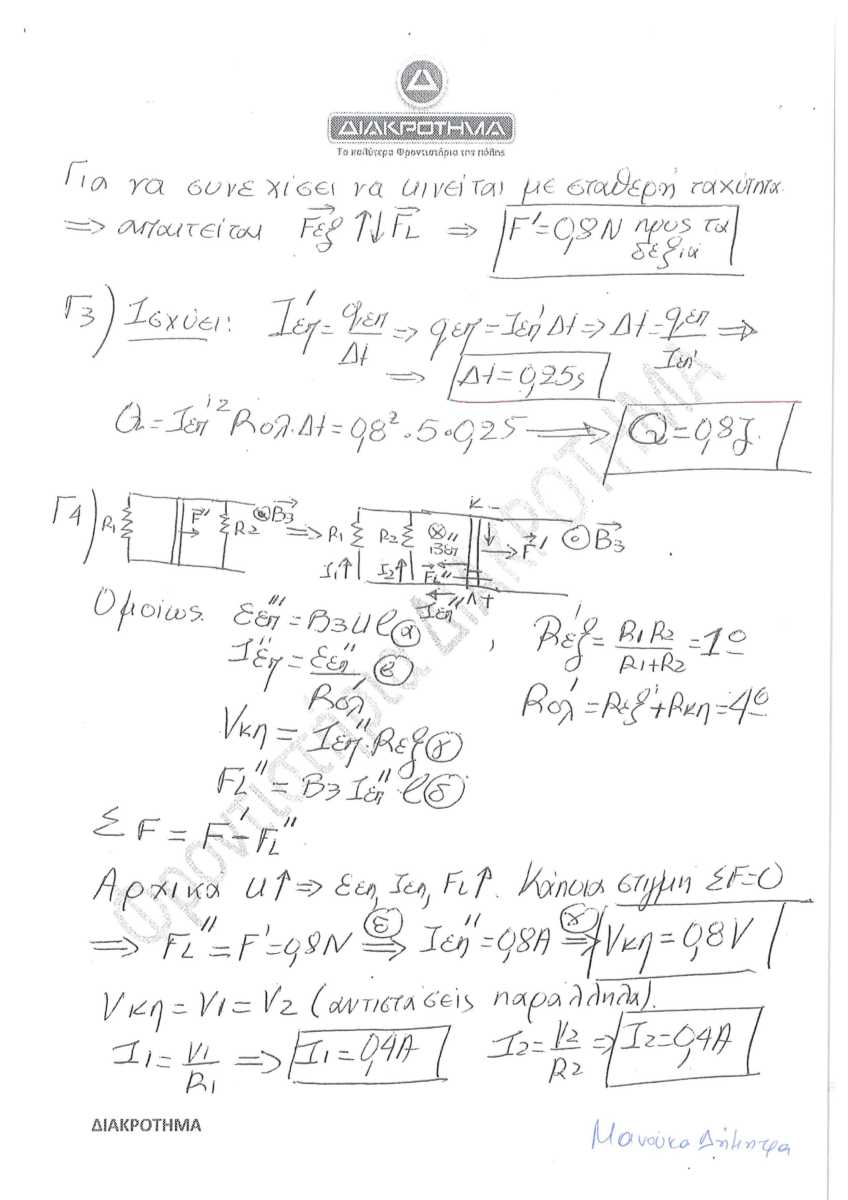 ΔΙΑΚΡΟΤΗΜΑ
Τα καλύτερα Φροντιστήρια της πόλης
Για να συνεχίσει να κινείται με σταθερή ταχύτητα
⇒ απαιτείται F⃗εξ ↑↓ F⃗L ⇒ F' = 0,8N προς τα δεξιά
Γ3) Ισχύει: Iεπ' = qεπ/Δt ⇒ qεπ = Iεπ' Δt ⇒ Δt = qεπ/Iεπ' ⇒
⇒ Δt = 0,25s
Q = Iεπ'² Rολ. Δt = 0,8² · 5 · 0,25 ⟶ Q = 0,8J.
Γ4) R1 F⃗' R2 ⊙B⃗3 ⇒ R1 R2 ⊗ Βεπ'' K - F⃗' ⊙ B⃗3
I1↑ I2↑ F⃗L'' Iεπ'' Λ +
Ομοίως. Εεπ''' = B3 u l (α) , Rεξ' = R1 R2/R1+R2 = 1Ω
Iεπ'' = Εεπ''/Rολ' (β) Rολ' = Rεξ' + Rκη = 4Ω
Vκη = Iεπ''. Rεξ (γ)
FL'' = B3 Iεπ'' l (δ)
ΣF = F' - FL''
Αρχικά u↑ ⇒ Εεπ, Iεπ, FL↑. Κάποια στιγμή ΣF=0
⇒ FL'' = F' = 0,8N ⇒ (δ) Iεπ'' = 0,8A ⇒ (γ) Vκη = 0,8V
Vκη = V1 = V2 (αντιστάσεις παράλληλα).
I1 = V1/R1 ⇒ I1 = 0,4A I2 = V2/R2 ⇒ I2 = 0,4A
ΔΙΑΚΡΟΤΗΜΑ
Μανούκα Δήμητρα
Φροντιστήρια ΔΙΑΚΡΟΤΗΜΑ